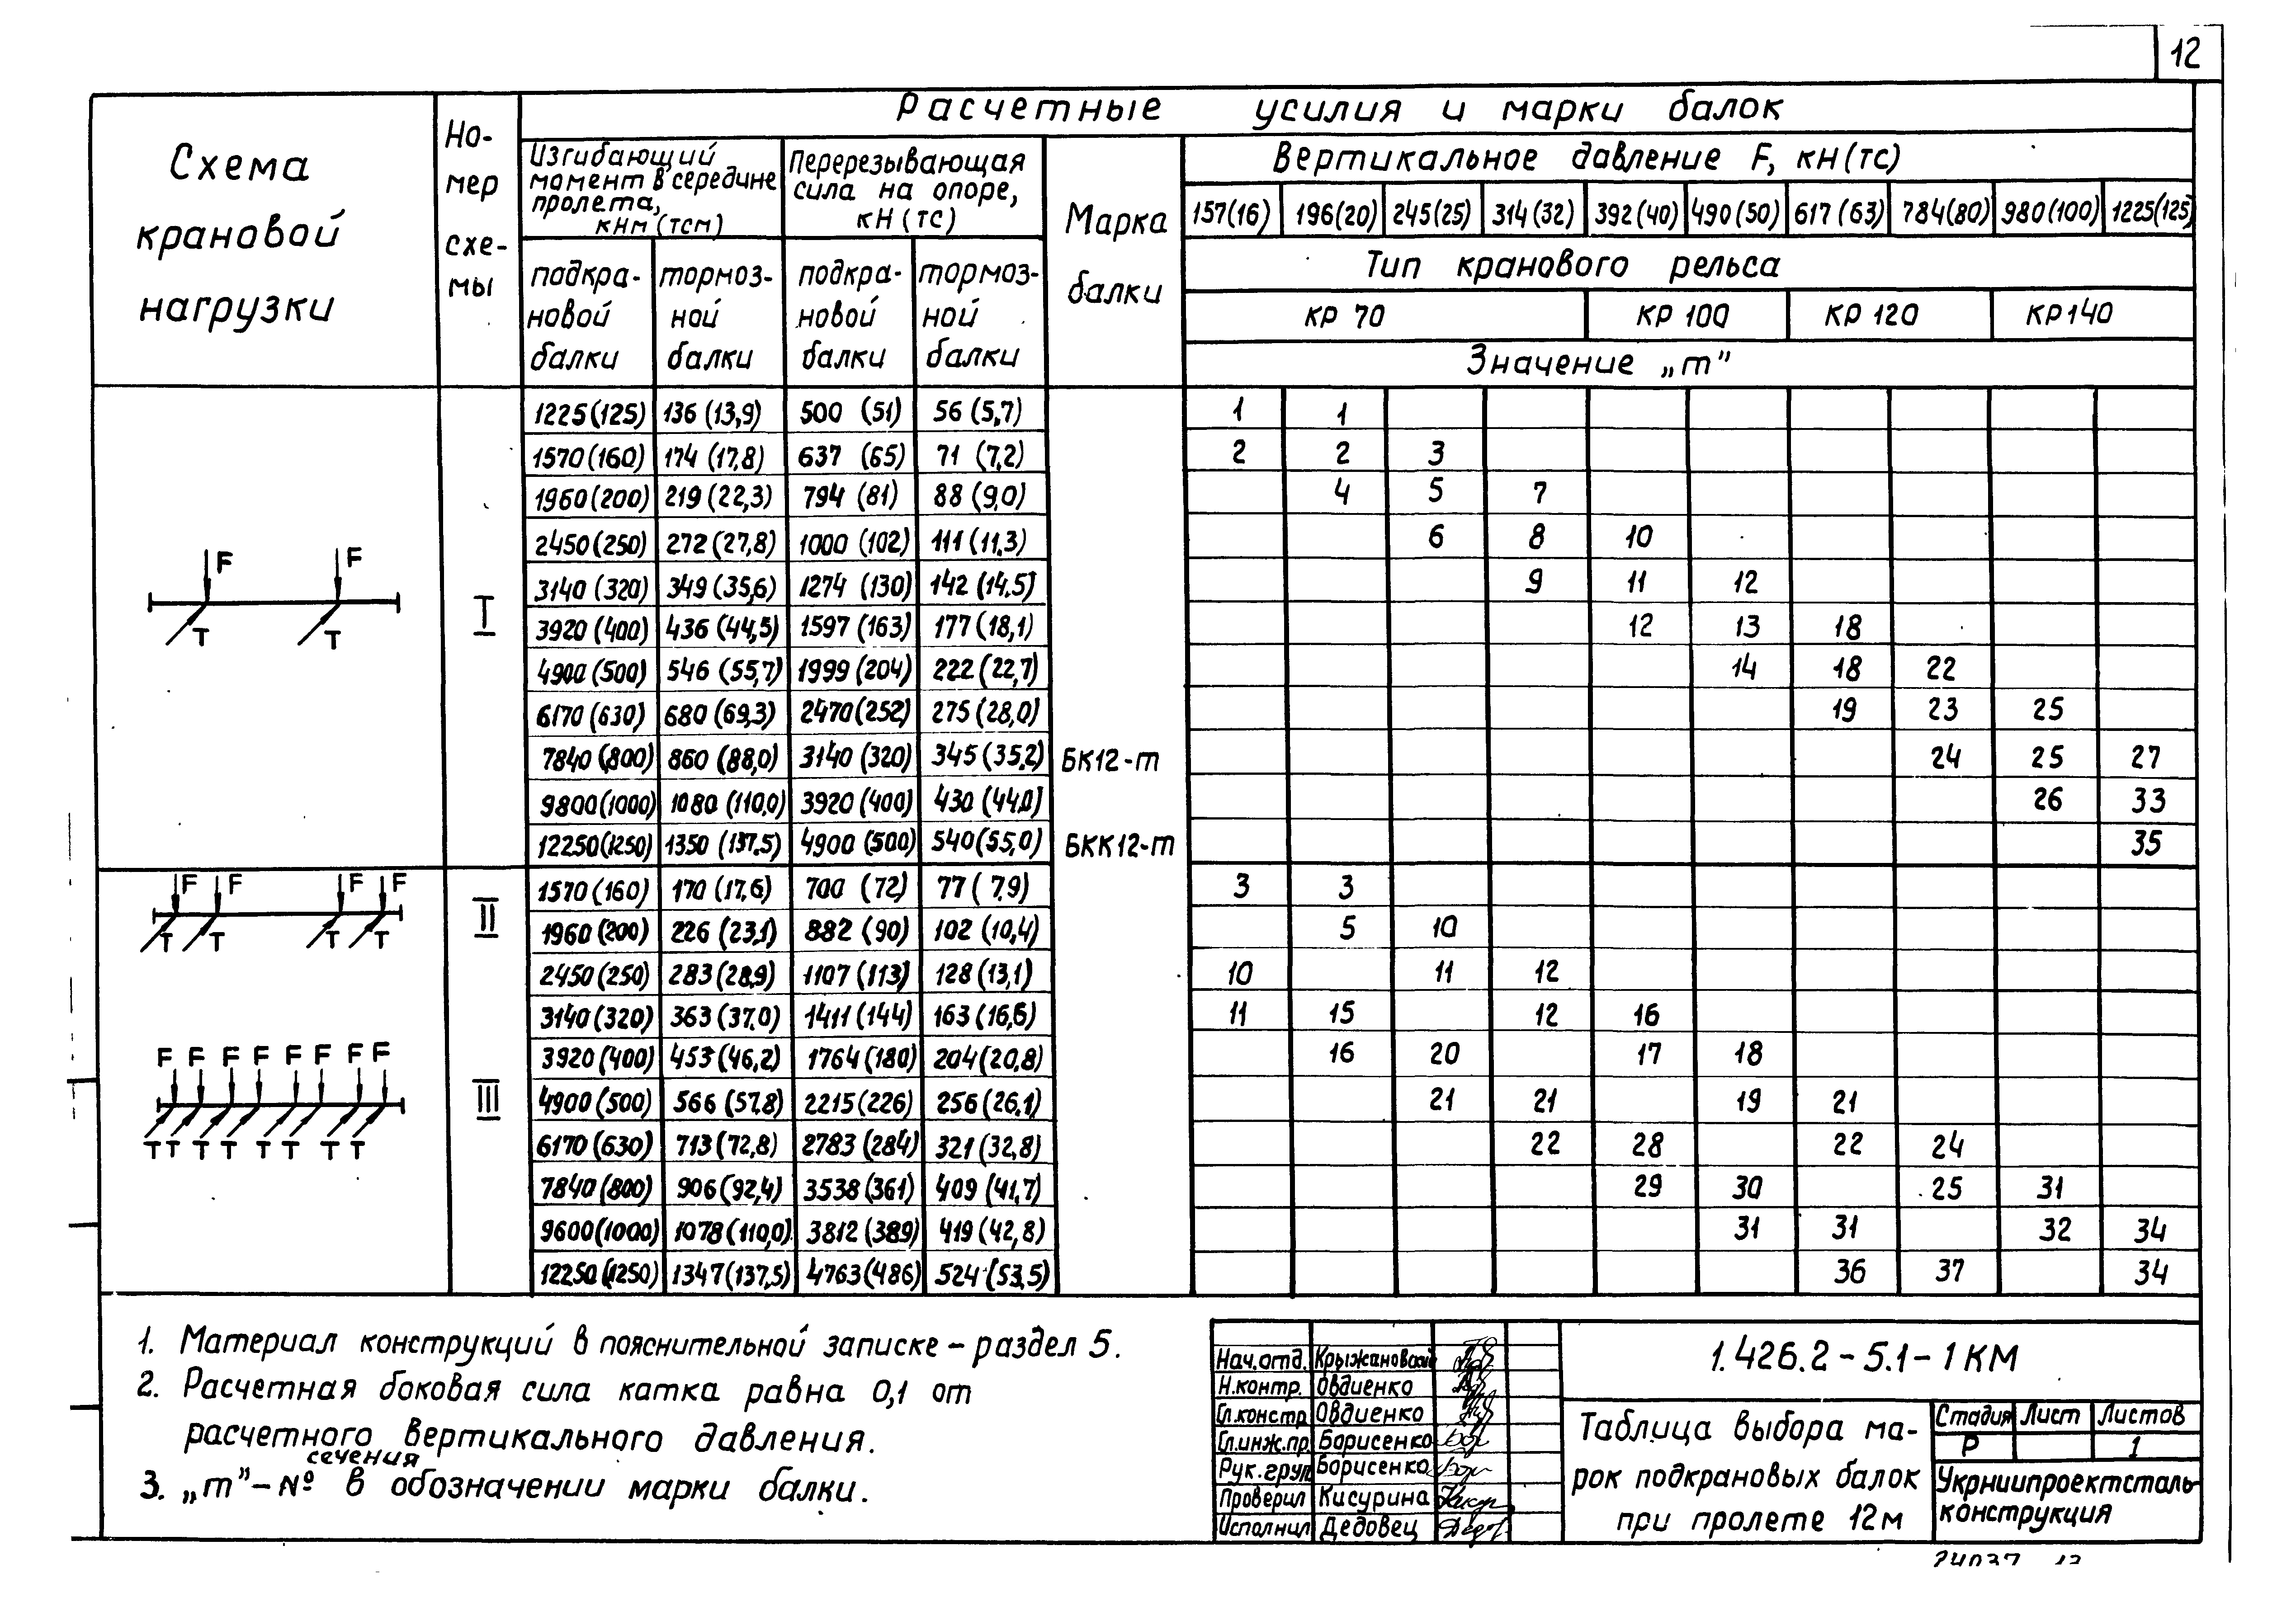 12
Расчетные усилия и марки балок
Схема крановой нагрузки
Но-мер схе-мы
Изгибающий момент в середине пролета, кНм (тсм)
Перерезывающая сила на опоре, кН (тс)
Марка балки
Вертикальное давление F, кН (тс)
157(16) 196(20) 245(25) 314(32) 392(40) 490(50) 617(63) 784(80) 980(100) 1225(125)
Тип кранового рельса
подкра-новой балки
тормоз-ной балки
подкра-новой балки
тормоз-ной балки
КР 70 КР 100 КР 120 КР140
Значение „m”
1225(125) 136 (13,9) 500 (51) 56 (5,7) 1 1
1570(160) 174 (17,8) 637 (65) 71 (7,2) 2 2 3
1960(200) 219 (22,3) 794 (81) 88 (9,0) 4 5 7
2450(250) 272 (27,8) 1000 (102) 111 (11.3) 6 8 10
3140 (320) 349 (35,6) 1274 (130) 142 (14,5) 9 11 12
3920 (400) 436 (44,5) 1597 (163) 177 (18,1) 12 13 18
4900 (500) 546 (55,7) 1999 (204) 222 (22,7) 14 18 22
6170 (630) 680 (69,3) 2470(252) 275 (28,0) 19 23 25
7840 (800) 860 (88,0) 3140 (320) 345 (35.2) БК12-m 24 25 27
9800(1000) 1080 (110,0) 3920 (400) 430 (44,0) 26 33
12250(1250) 1350 (137.5) 4900 (500) 540(55,0) БКК12-m 35
F F
T T
I
1570 (160) 170 (17,6) 700 (72) 77 (7,9) 3 3
1960 (200) 226 (23,1) 882 (90) 102 (10,4) 5 10
2450 (250) 283 (28,9) 1107 (113) 128 (13,1) 10 11 12
3140 (320) 363 (37,0) 1411 (144) 163 (16,6) 11 15 12 16
3920 (400) 453 (46,2) 1764 (180) 204 (20,8) 16 20 17 18
4900 (500) 566 (57,8) 2215 (226) 256 (26,1) 21 21 19 21
6170 (630) 713 (72,8) 2783 (284) 321 (32,8) 22 28 22 24
7840 (800) 906 (92,4) 3538 (361) 409 (41,7) 29 30 25 31
9600(1000) 1078 (110,0) 3812 (389) 419 (42,8) 31 31 32 34
12250 (1250) 1347 (137,5) 4763 (486) 524 (53,5) 36 37 34
F F F F
T T T T
II
F F F F F F F F
T T T T T T T T
III
1. Материал конструкций в пояснительной записке – раздел 5.
2. Расчетная боковая сила катка равна 0,1 от
расчетного вертикального давления.
3. „m” – № сечения в обозначении марки балки.
Нач.отд. Крыжановский
Н.контр. Овдиенко
Гл.констр Овдиенко
Гл.инж.пр. Борисенко
Рук.груп Борисенко
Проверил Кисурина
Исполнил Дедовец
1.426.2 – 5.1 – 1 КМ
Таблица выбора ма-
рок подкрановых балок
при пролете 12м
Стадия Лист Листов
Р 1
Укрниипроектсталь-
конструкция